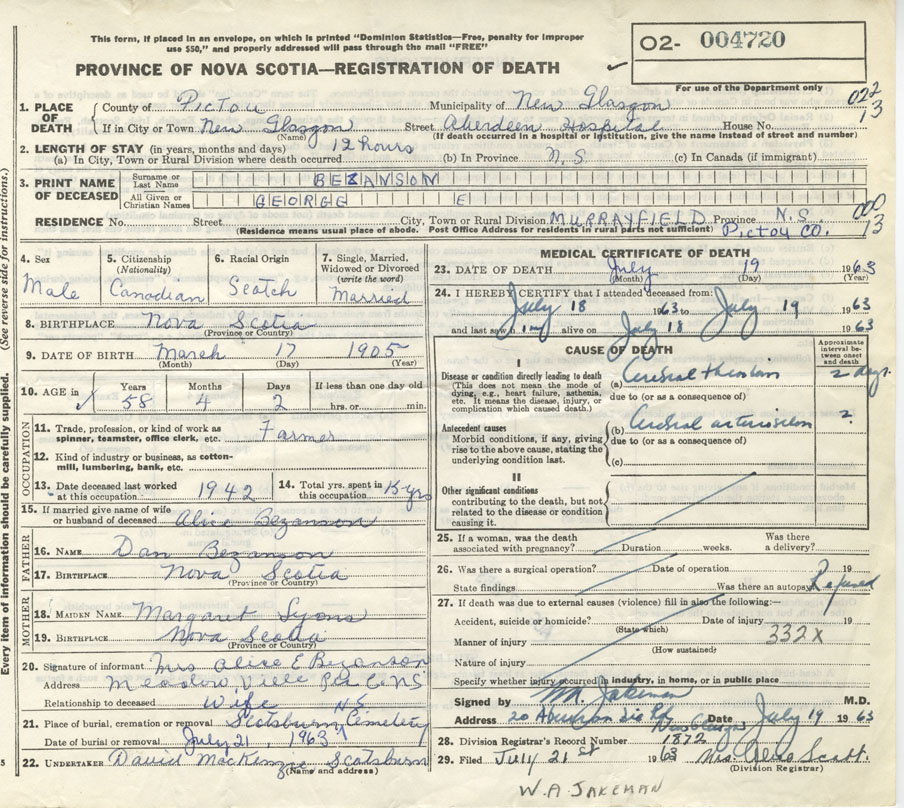 This form, if placed in an envelope, on which is printed "Dominion Statistics—Free, penalty for improper
use $50," and properly addressed will pass through the mail "FREE"
PROVINCE OF NOVA SCOTIA—REGISTRATION OF DEATH
O2- 004720
For use of the Department only
022
13
1. PLACE OF DEATH
County of Pictou Municipality of New Glasgow
If in City or Town New Glasgow Street Aberdeen Hospital House No.
(Name) (If death occurred in a hospital or institution, give the name instead of street and number)
2. LENGTH OF STAY (in years, months and days) 12 hours
(a) In City, Town or Rural Division where death occurred (b) In Province N.S. (c) In Canada (if immigrant)
3. PRINT NAME OF DECEASED
Surname or Last Name BEZANSON
All Given or Christian Names GEORGE E
000
13
RESIDENCE No. Street City, Town or Rural Division MURRAYFIELD Province N.S.
(Residence means usual place of abode. Post Office Address for residents in rural parts not sufficient) Pictou Co.
(See reverse side for instructions.)
Every item of information should be carefully supplied.
4. Sex
Male
5. Citizenship (Nationality)
Canadian
6. Racial Origin
Scotch
7. Single, Married, Widowed or Divorced (write the word)
Married
8. BIRTHPLACE Nova Scotia
(Province or Country)
9. DATE OF BIRTH March 17 1905
(Month) (Day) (Year)
10. AGE in Years Months Days If less than one day old
58 4 2 hrs. or min.
OCCUPATION
11. Trade, profession, or kind of work as spinner, teamster, office clerk, etc. Farmer
12. Kind of industry or business, as cotton-mill, lumbering, bank, etc.
13. Date deceased last worked at this occupation 1942
14. Total yrs. spent in this occupation 15 yrs
15. If married give name of wife or husband of deceased Alice Bezanson
FATHER
16. NAME Dan Bezanson
17. BIRTHPLACE Nova Scotia
(Province or Country)
MOTHER
18. MAIDEN NAME Margaret Lyons
19. BIRTHPLACE Nova Scotia
(Province or Country)
20. Signature of informant Mrs Alice E Bezanson
Address Meadowville Pic Co NS
Relationship to deceased Wife NS
21. Place of burial, cremation or removal Scotsburn Cemetery
Date of burial or removal July 21, 1963
22. UNDERTAKER David MacKenzie Scotsburn
(Name and address)
MEDICAL CERTIFICATE OF DEATH
23. DATE OF DEATH July 19 1963
(Month) (Day) (Year)
24. I HEREBY CERTIFY that I attended deceased from:
July 18 1963 to July 19 1963
and last saw him alive on July 18 1963
CAUSE OF DEATH
Approximate interval between onset and death
I
Disease or condition directly leading to death
(This does not mean the mode of dying, e.g., heart failure, asthenia, etc. It means the disease, injury, or complication which caused death.)
(a) Cerebral 2 days
due to (or as a consequence of)
Antecedent causes
Morbid conditions, if any, giving rise to the above cause, stating the underlying condition last.
(b) Cerebral ?
due to (or as a consequence of)
(c)
II
Other significant conditions
contributing to the death, but not related to the disease or condition causing it.
25. If a woman, was the death associated with pregnancy? Duration weeks. Was there a delivery?
26. Was there a surgical operation? Date of operation 19
State findings Was there an autopsy Refused
27. If death was due to external causes (violence) fill in also the following:—
Accident, suicide or homicide? Date of injury 19
(State which)
332X
Manner of injury
(How sustained)
Nature of injury
Specify whether injury occurred in industry, in home, or in public place
Signed by WA Jakeman M.D.
Address 20 New Glasgow Date July 19 1963
28. Division Registrar's Record Number 1872
29. Filed July 21st 1963 Mrs. Scott.
(Division Registrar)
W.A JAKEMAN